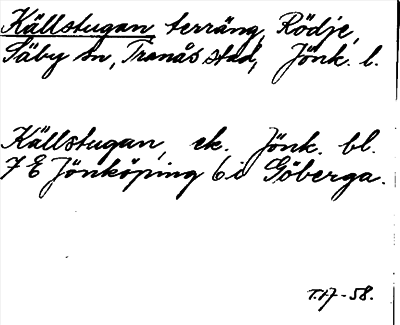 Källstugan terräng, Rödje,
Säby sn, Tranås stad, Jönk. l.
Källstugan, ek. Jönk. bl.
7 E Jönköping 6 i Göberga.
T.17-58.